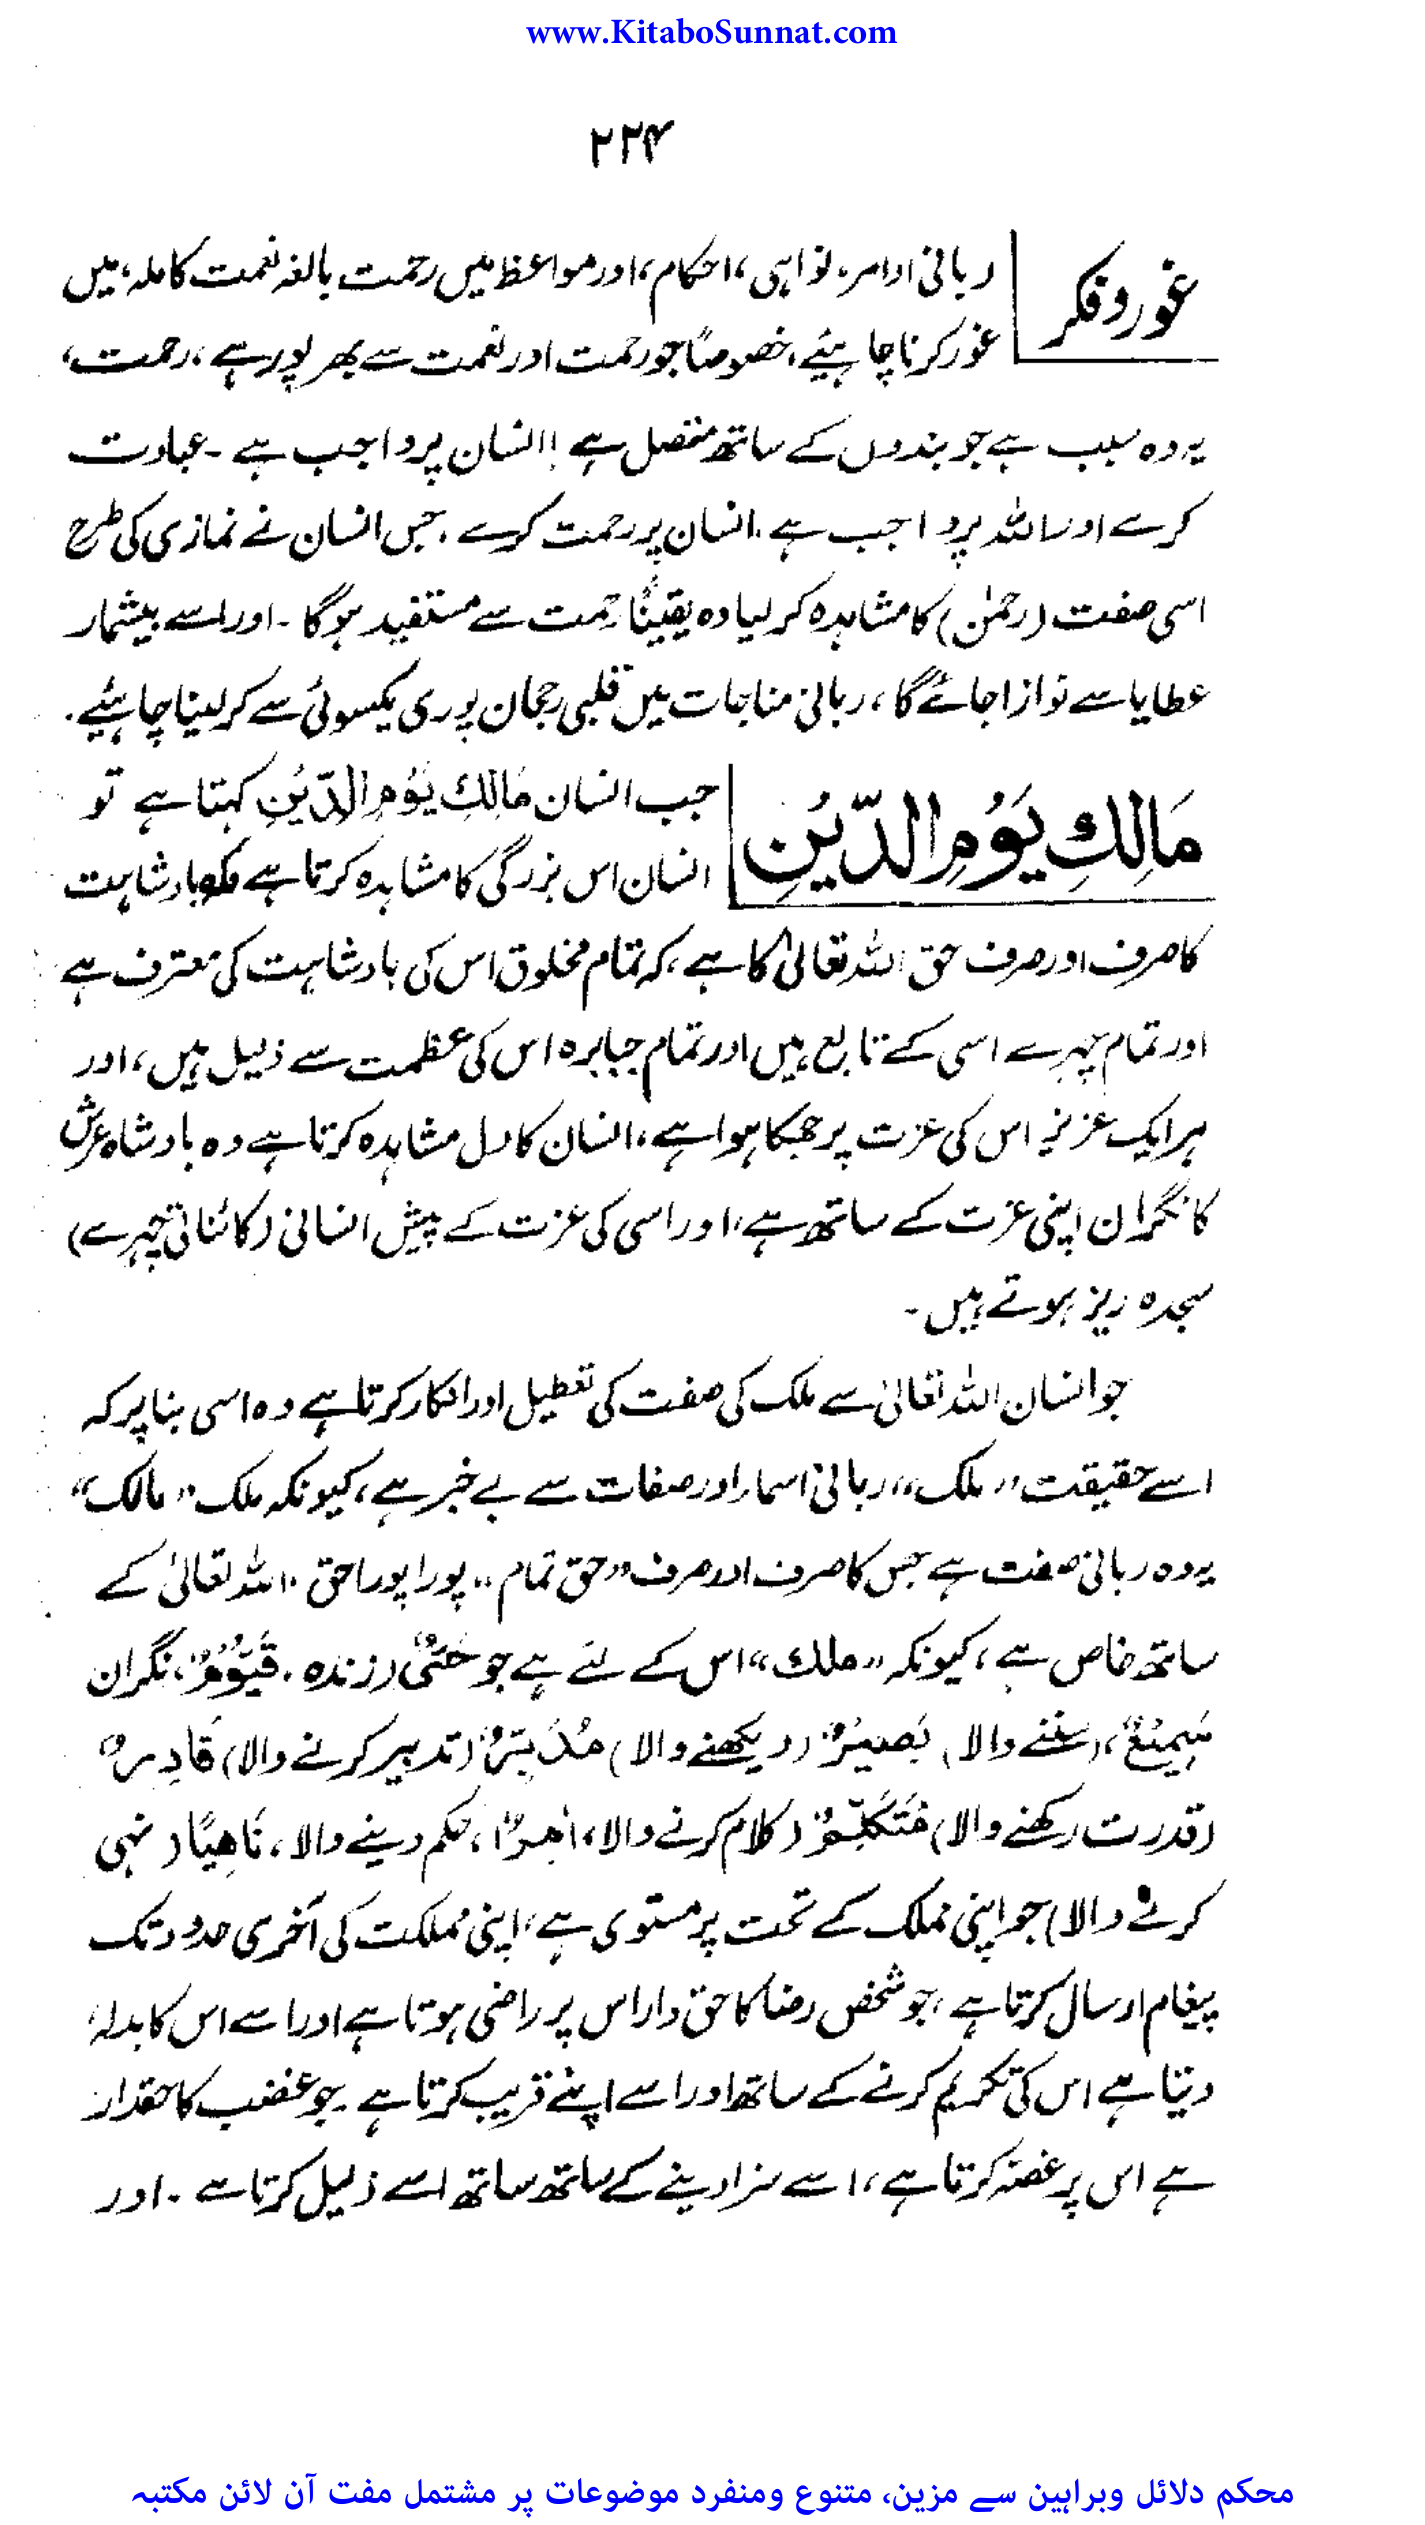 www.KitaboSunnat.com
۲۲۴
غور و فکر
ربانی اوامر، نواہی، احکام، اور مواعظ میں رحمت بالغہ نعمت کاملہ، میں
غور کرنا چاہئیے، خصوصًا جو رحمت اور نعمت سے بھر پور ہے، رحمت،
یہ وہ سبب ہے جو بندوں کے ساتھ متصل ہے ! انسان پر واجب ہے ۔ عبادت
کرے اور اللہ پر واجب ہے ۔ انسان پر رحمت کرے ، جس انسان نے نمازی کی طرح
اسی صفت (رحمٰن) کا مشاہدہ کر لیا وہ یقینًا رحمت سے مستفید ہو گا ۔ اور اسے بیشمار
عطایا سے نوازا جائے گا ، ربانی مناجات میں قلبی رجحان پوری یکسوئی سے کر لینا چاہئیے ۔
مَالِكِ يَوْمِ الدِّيْنِ
جب انسان مَالِكِ يَوْمِ الدِّيْنِ کہتا ہے تو
انسان اس بزرگی کا مشاہدہ کرتا ہے بادشاہت
کا صرف اور صرف حق اللہ تعالیٰ کا ہے ، کہ تمام مخلوق اس کی بادشاہت کی معترف ہے
اور تمام چہرے اسی کے تابع ہیں اور تمام جبابرہ اس کی عظمت سے ذلیل ہیں ، اور
ہر ایک عزیز اس کی عزت پر جھکا ہوا ہے ، انسان کا دل مشاہدہ کرتا ہے وہ بادشاہ عرش
کا نگران اپنی عزت کے ساتھ ہے ، اور اسی کی عزت کے پیش انسانی (کائناتی چہرے)
سجدہ ریز ہوتے ہیں ۔
جو انسان اللہ تعالیٰ سے ملک کی صفت کی تعطیل اور انکار کرتا ہے وہ اسی بنا پر کہ
اسے حقیقت "ملک" ربانی اسماء اور صفات سے بے خبر ہے ، کیونکہ ملک "مالک"
یہ وہ ربانی صفت ہے جس کا صرف اور صرف "حق تمام" پورا پورا حق ۔ اللہ تعالیٰ کے
ساتھ خاص ہے ، کیونکہ "ملك" اس کے لئے ہے جو حَیٌّ (زندہ ۔ قَيُّوْمٌ ، نگران
سَمِيْعٌ ، (سننے والا) بَصِيْرٌ (دیکھنے والا) مُدَبِّرٌ (تدبیر کرنے والا) قَادِرٌ
(قدرت رکھنے والا) مُتَكَلِّمٌ (کلام کرنے والا ، اٰمِرًا ، حکم دینے والا ، نَاهِيًا (نہی
کرنے والا) جو اپنی مملک کے تخت پر مستوی ہے ، اپنی مملکت کی آخری حدود تک
پیغام ارسال کرتا ہے ، جو شخص رضا کا حق دار اس پر راضی ہوتا ہے اور اسے اس کا بدلہ
دیتا ہے اس کی تکریم کرنے کے ساتھ اور اسے اپنے قریب کرتا ہے ۔ جو غضب کا حقدار
ہے اس پر غصّہ کرتا ہے ، اسے سزا دینے کے ساتھ ساتھ اسے ذلیل کرتا ہے ۔ اور
محکم دلائل وبراہین سے مزین، متنوع ومنفرد موضوعات پر مشتمل مفت آن لائن مکتبہ